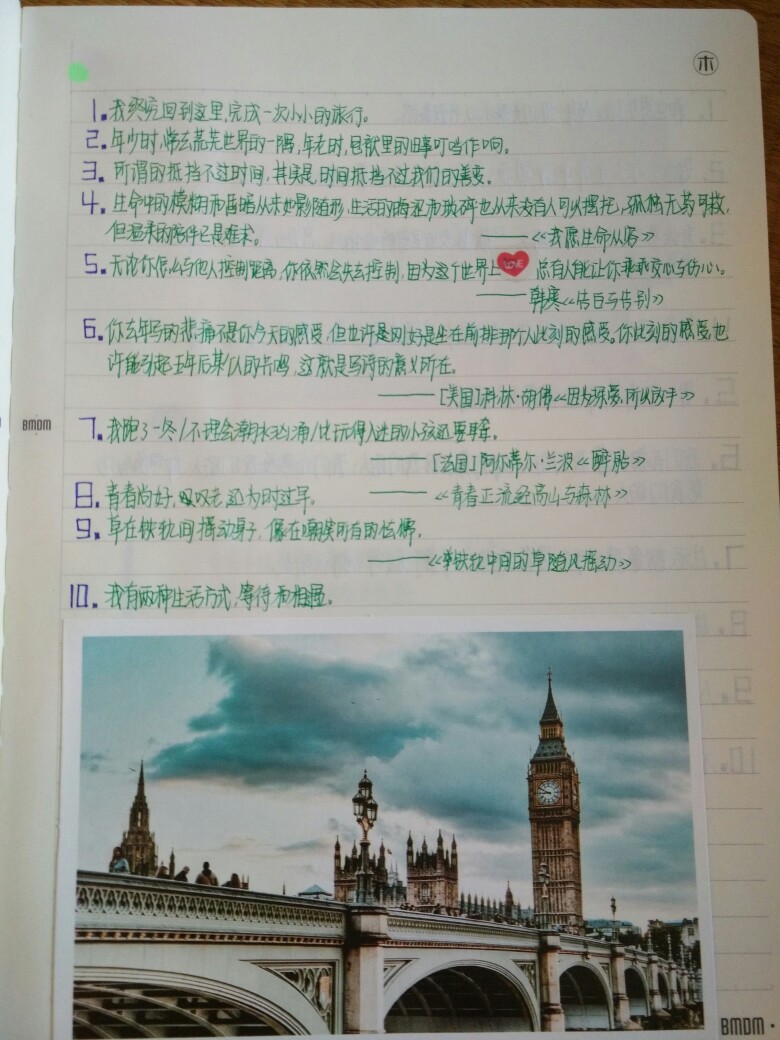 木
1. 我终究回到这里,完成一次小小的旅行。
2. 年少时,常去荒芜世界的一隅,年老时,口袋里的旧事叮当作响。
3. 所谓的抵挡不过时间,其实是,时间抵挡不过我们的善变。
4. 生命中的模糊而昏暗从来如影随形,生活的晦涩而琐碎也从来没有人可以摆托,孤独无药可救,
但温柔的陪伴已是难求。 ——《我愿生命从容》
5. 无论你怎么与他人控制距离,你依然会失去控制,因为这个世界上 LOVE 总有人能让你乖乖交心与伤心。
——韩寒《告白与告别》
6. 你去年写的悲痛不是你今天的感受,但也许是刚好是坐在前排那个人此刻的感受。你此刻的感受,也
许能引起五年后某个人的共鸣,这就是写诗的意义所在。
——[美国]科林·胡佛《因为深爱,所以放手》
BMDM
7. 我跑了一冬/不理会潮水汹涌/比玩得入迷的小孩还要耳聋。
——[法国]阿尔蒂尔·兰波《醉船》
8. 青春尚好,叹老还为时过早。 ——《青春正流经高山与森林》
9. 草在铁轨间摇动身子,像在嘲笑所有的怯懦。
——《单铁轨中间的草随风摇动》
10. 我有两种生活方式,等待和相遇。
BMDM